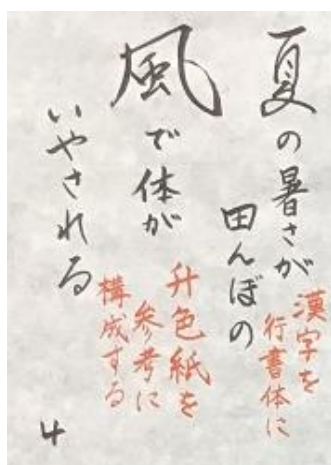 夏の暑さが
田んぼの
風で体が
いやされる
漢字を
行書体に
升色紙を
参考に
構成する
4